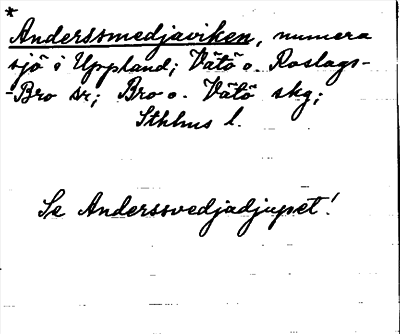 *
Anderssmedjaviken, numera
sjö i Uppland; Vätö o. Roslags-
-Bro sr; Bro o. Vätö skg;
Sthlms l.
Se Anderssvedjadjupet!